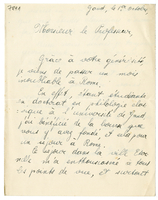 Gand, le 1er octobre
Monsieur le Professeur,
Grâce à votre générosité
je viens de passer un mois
inoubliable à Rome.
En effet, étant étudiante
en doctorat en philologie clas-
sique à l'université de Gand,
j'ai bénéficié de la bourse que
vous y avez fondé, et a pu
séjourner à Rome.
Le séjour dans la ville Éter-
nelle m'a enthousiasmée à tous
les points de vue, et surtout